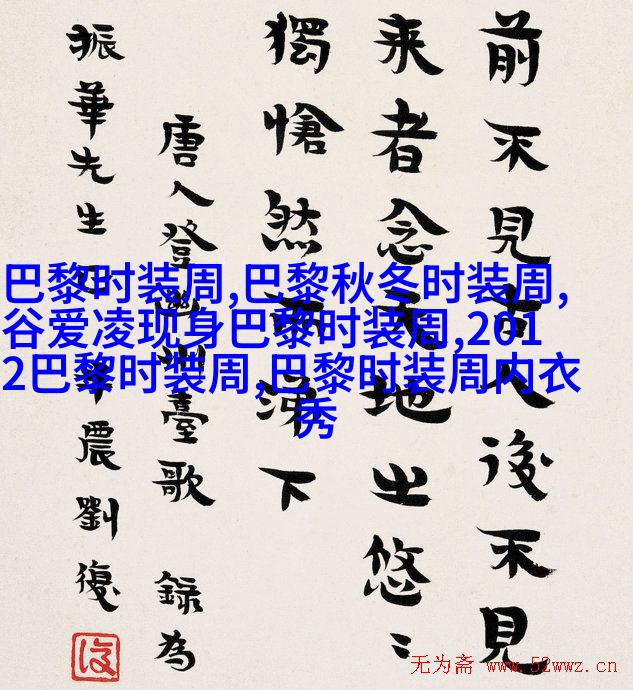 前不見古人後不見
来者念天地之悠〻
獨愴然而涕下
唐人登幽州臺歌 錄為
振華先生 半農劉復
復
巴黎时装周,巴黎秋冬时装周,
谷爱凌现身巴黎时装周,201
2巴黎时装周,巴黎时装周内衣
秀
无为斋 www.52wwz.cn